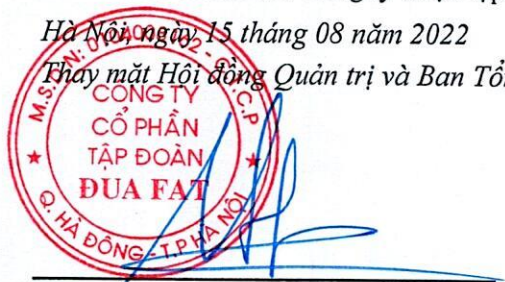 Hà Nội, ngày 15 tháng 08 năm 2022
Thay mặt Hội đồng Quản trị và Ban
CÔNG TY
CỔ PHẦN
TẬP ĐOÀN
ĐUA FAT
Q. HÀ ĐÔNG - T.P HÀ NỘI